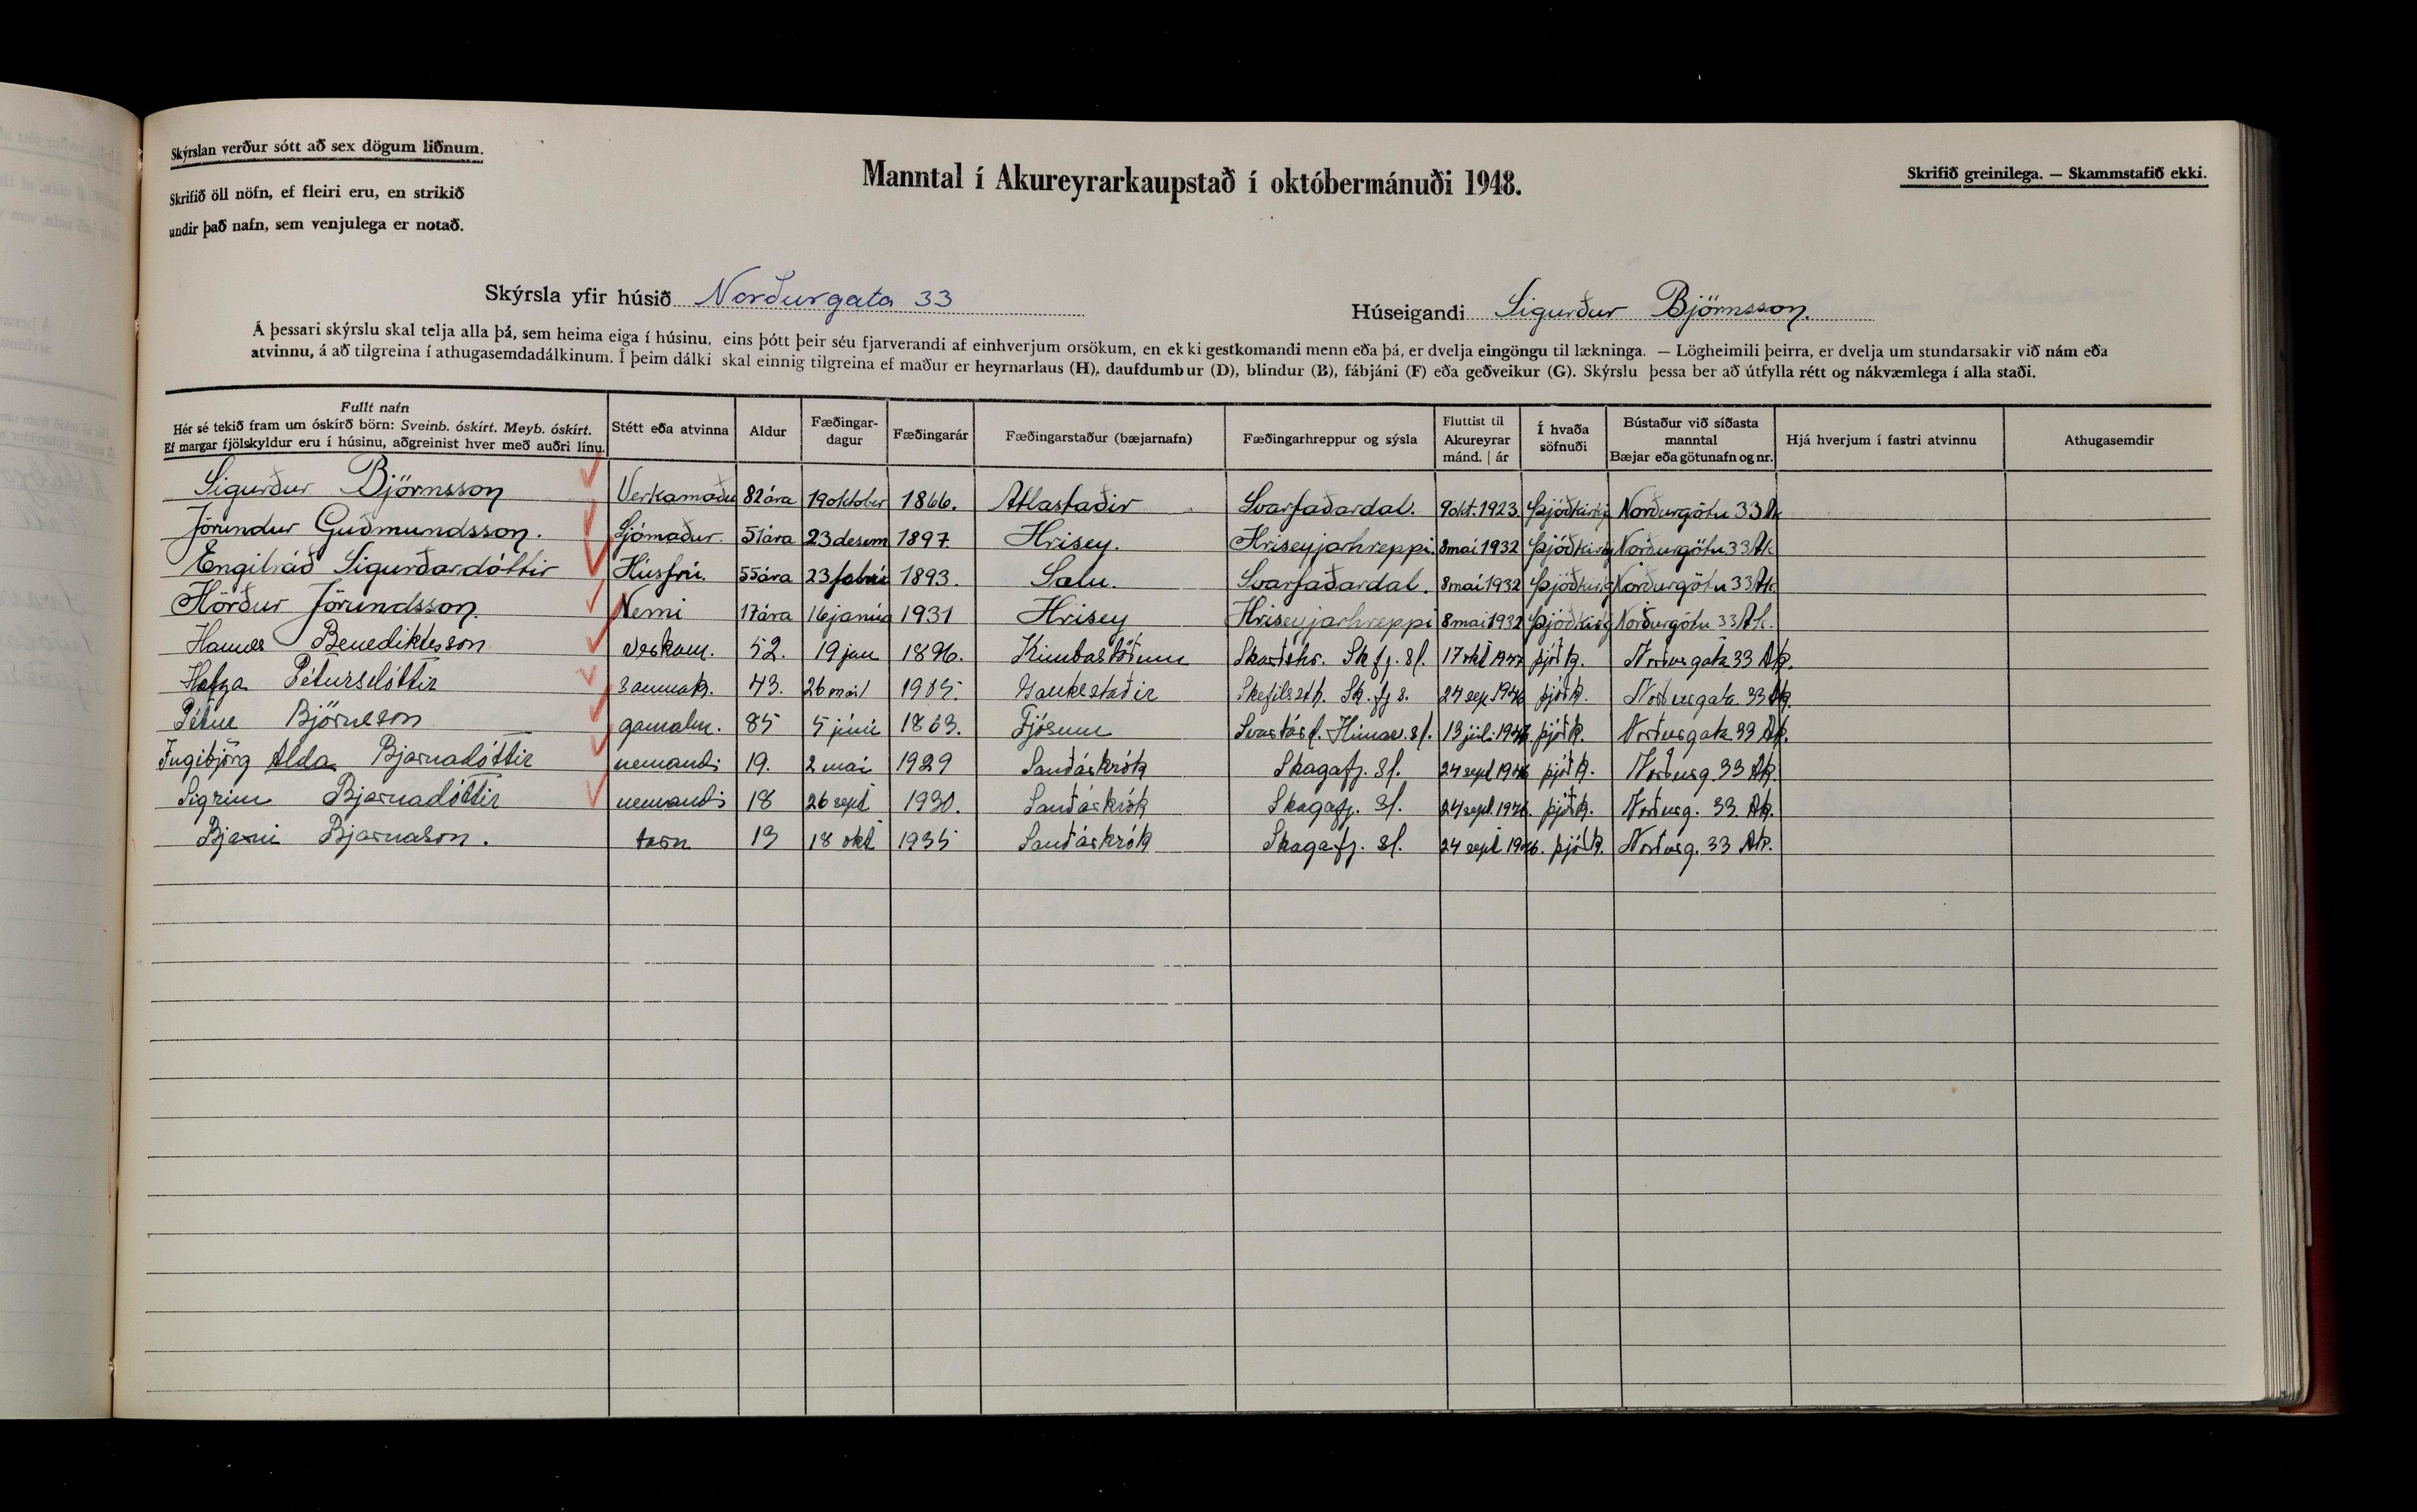 Skýrslan verður sótt að sex dögum liðnum.
Skrifið öll nöfn, ef fleiri eru, en strikið
undir það nafn, sem venjulega er notað.
Manntal í Akureyrarkaupstað í októbermánuði 1948.
Skrifið greinilega. — Skammstafið ekki.
Skýrsla yfir húsið Norðurgata 33
Húseigandi Sigurður Björnsson.
Á þessari skýrslu skal telja alla þá, sem heima eiga í húsinu, eins þótt þeir séu fjarverandi af einhverjum orsökum, en ekki gestkomandi menn eða þá, er dvelja eingöngu til lækninga. — Lögheimili þeirra, er dvelja um stundarsakir við nám eða
atvinnu, á að tilgreina í athugasemdadálkinum. Í þeim dálki skal einnig tilgreina ef maður er heyrnarlaus (H), daufdumbur (D), blindur (B), fábjáni (F) eða geðveikur (G). Skýrslu þessa ber að útfylla rétt og nákvæmlega í alla staði.
Fullt nafn
Hér sé tekið fram um óskírð börn: Sveinb. óskírt. Meyb. óskírt.
Ef margar fjölskyldur eru í húsinu, aðgreinist hver með auðri línu.
Stétt eða atvinna
Aldur
Fæðingar-
dagur
Fæðingarár
Fæðingarstaður (bæjarnafn)
Fæðingarhreppur og sýsla
Fluttist til
Akureyrar
mánd. | ár
Í hvaða
söfnuði
Bústaður við síðasta
manntal
Bæjar eða götunafn og nr.
Hjá hverjum í fastri atvinnu
Athugasemdir
Sigurður Björnsson Verkamaðu 82 ára 19 október 1866. Atlastaðir Svarfaðardal. 9 okt. 1923. Þjóðkirkj Norðurgötu 33 Ak
Jörundur Guðmundsson. Sjómaður 51 ára 23 desem 1897. Hrisey. Hriseyjarhreppi. 8 mai 1932 Þjóðkirkj Norðurgötu 33 Ak.
Engilráð Sigurðardóttir Húsfrú. 55 ára 23 febrú 1893. Svarfaðardal. 8 mai 1932 Þjóðkirkj Norðurgötu 33 Ak.
Hörður Jörundsson. Nemi 17 ára 16 janúa 1931 Hrisey Hriseyjarhreppi 8 mai 1932 Þjóðkirkj Norðurgötu 33 Ak.
Hannes Benediktsson verkam. 52. 19 jan 1896. Kimbastöðum Skarðshr. Sk.fj. sl. 17 okt þjóðk. Norðurgata 33 Ak.
Pétursdóttir saumak. 43. 26 mai 1905. Gaukstaðir Skefilssth. Sk.fj s. 24 sep. 1946 þjóðk. Norðurgata 33 Ak.
Pétur Björnsson gamalm. 85 5 júní 1863. Fjósum 13 júl. þjóðk. Norðurgata 33 Ak.
Ingibjörg Alda Bjarnadóttir nemandi 19. 2 mai 1929 Sauðárkrók Skagafj. sl. 24 sept 1946 þjóðk. Norðurg 33 Ak.
Sigrún Bjarnadóttir nemandi 18 26 sept 1930. Sauðárkrók Skagafj. sl. 24 sept. 1946. þjóðk. Norðurg. 33 Ak.
Bjarni Bjarnason. barn 13 18 okt 1935 Sauðárkrók Skagafj. sl. 24 sept 1946. þjóðk. Norðurg. 33 Ak.